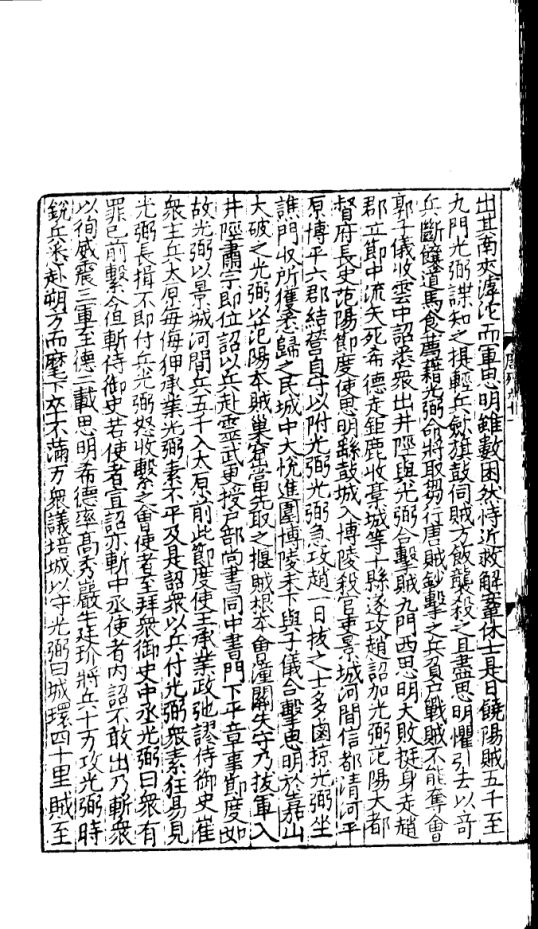 出其南夾滹沱而軍思明雖數困然恃近救解鞌休士是日饒陽賊五千至
九門光弼諜知之提輕兵斂旗鼓伺賊方飯襲殺之且盡思明懼引去以奇
兵斷饟道馬食薦藉光弼命將取芻行唐賊鈔擊之兵負戶戰賊不能奪會
郭子儀收雲中詔悉眾出井陘與光弼合擊賊九門西思明大敗挺身走趙
郡立節中流矢死希德走鉅鹿收藁城等十縣遂攻趙詔加光弼范陽大都
督府長史范陽節度使思明繇鼓城入博陵殺官吏景城河間信都清河平
原博平六郡結營自守以附光弼光弼急攻趙一日拔之士多鹵掠光弼坐
譙門收所獲悉歸之民城中大悅進圍博陵未下與子儀合擊思明於嘉山
大破之光弼以范陽本賊巢窟當先取之揠賊根本會潼關失守乃拔軍入
井陘肅宗即位詔以兵赴靈武更授戶部尚書同中書門下平章事節度如
故光弼以景城河間兵五千入太原前此節度使王承業政弛謬侍御史崔
衆主兵太原每侮狎承業光弼素不平及是詔衆以兵付光弼衆素狂易見
光弼長揖不即付兵光弼怒收繫之會使者至拜衆御史中丞光弼曰衆有
罪已前繫今但斬侍御史若使者宣詔亦斬中丞使者內詔不敢出乃斬衆
以徇威震三軍至德二載思明希德率高秀巖牛廷玠將兵十万攻光弼時
銳兵悉赴朔方而麾下卒不滿万衆議培城以守光弼曰城環四十里賊至
唐列